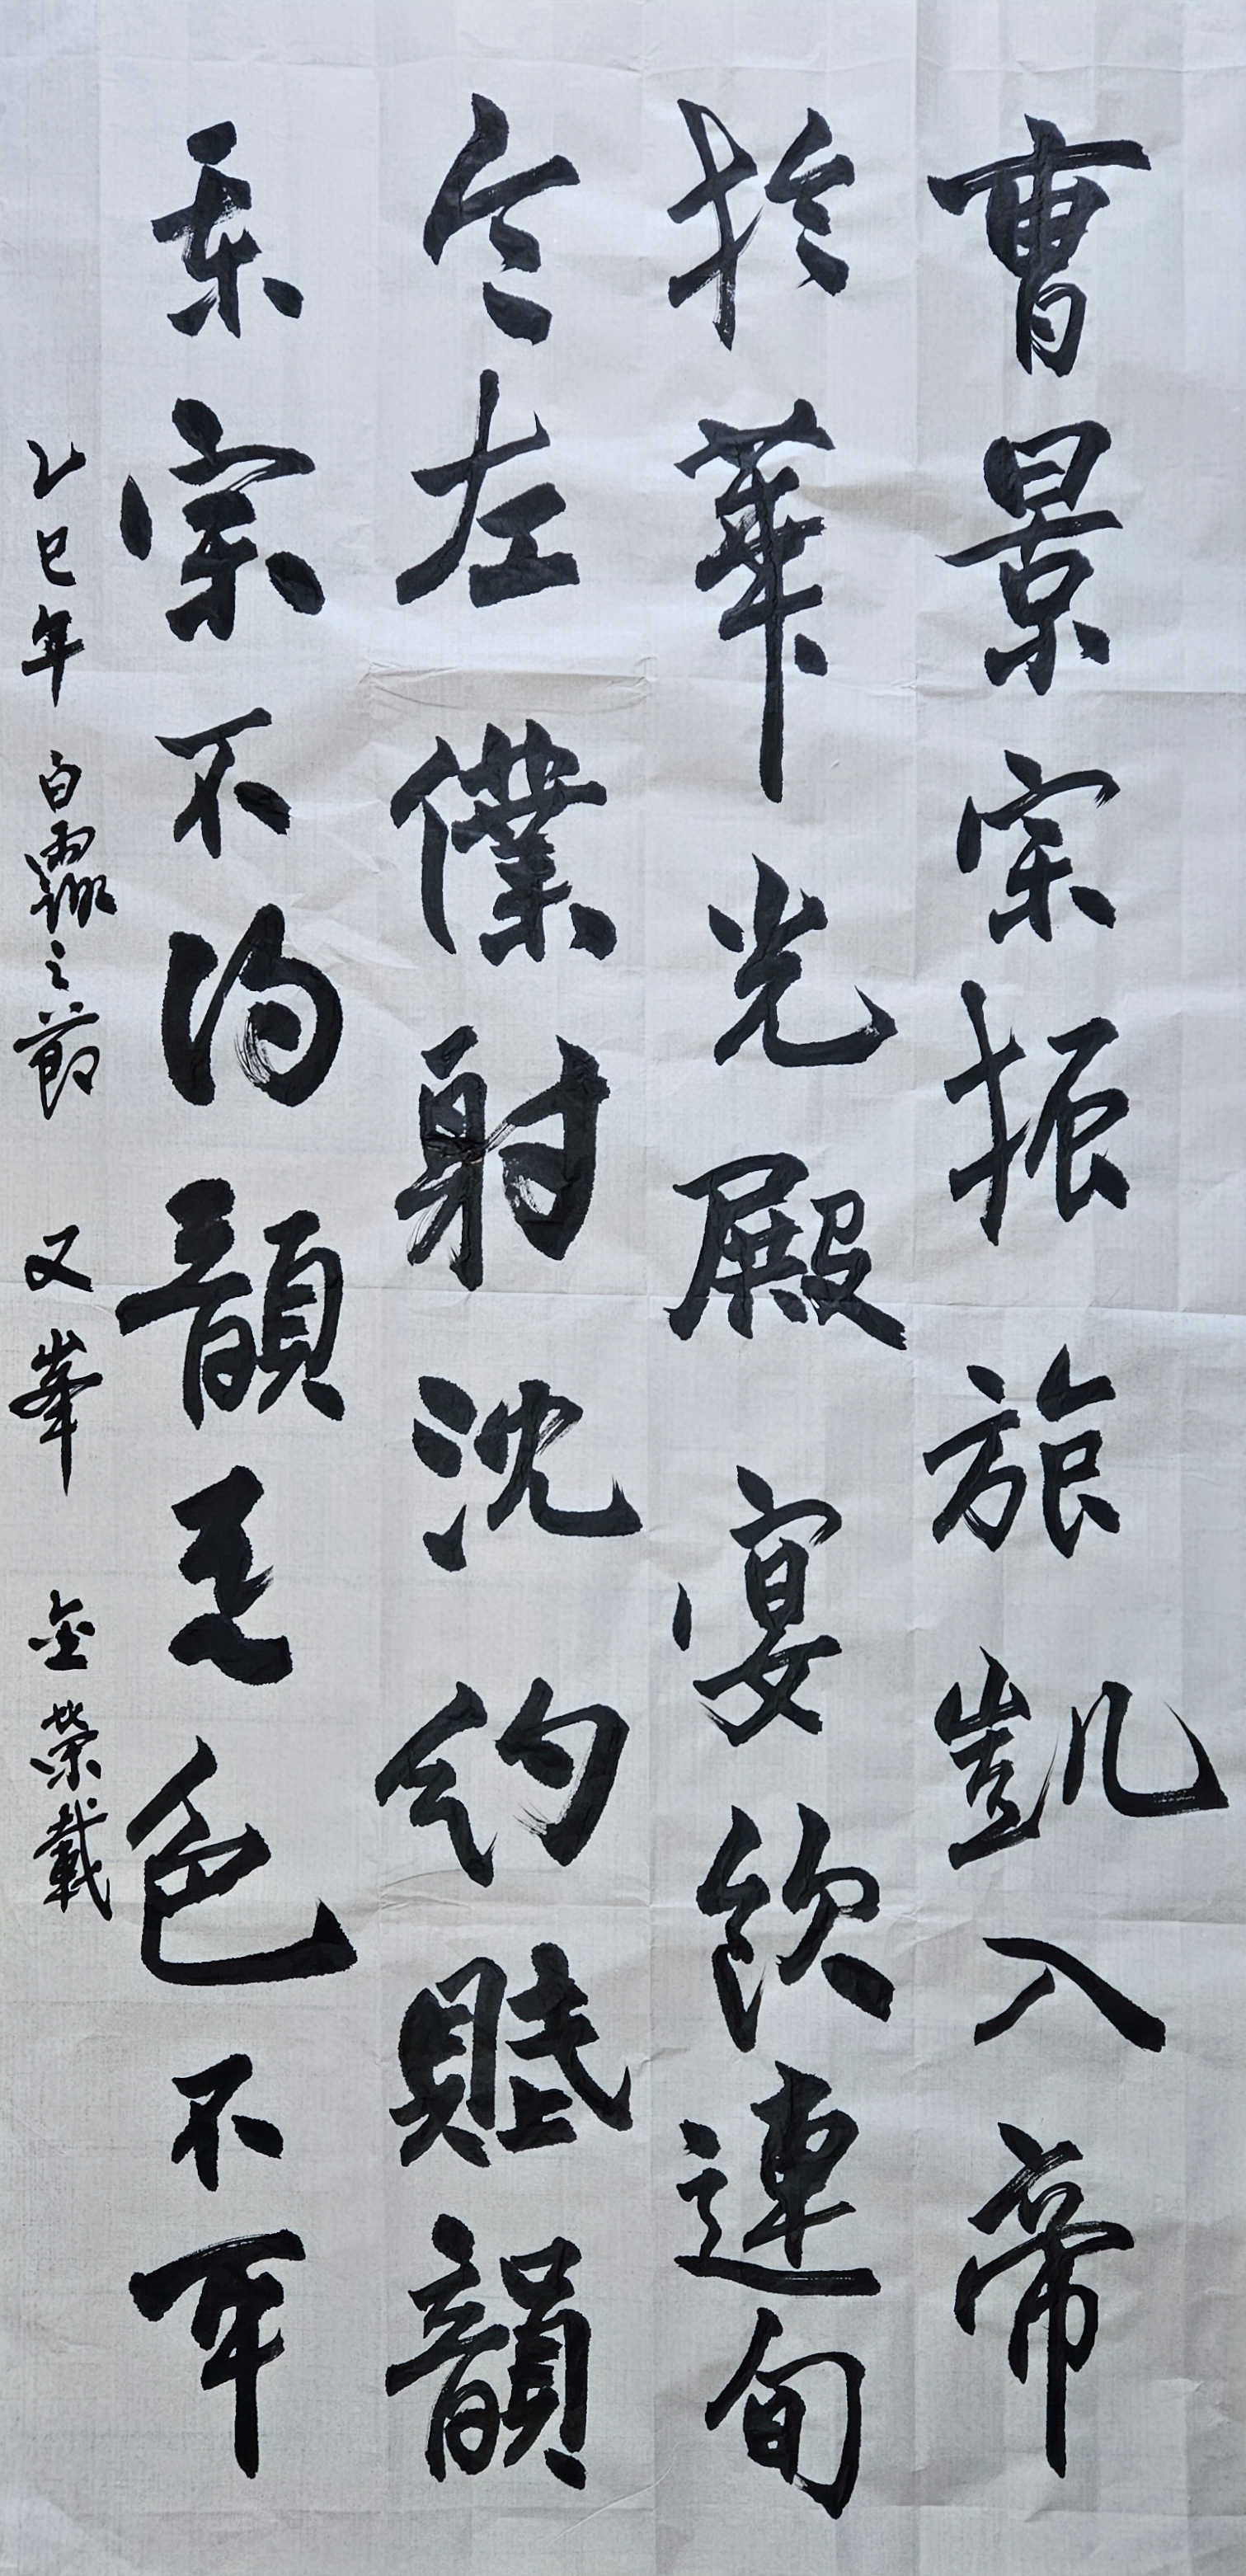 曹景宗振旅凱入帝
於華光殿宴飲連旬
令左僕射沈約賦韻
景宗不得韻意色不平
乙巳年 白露之節 又峯 金榮載